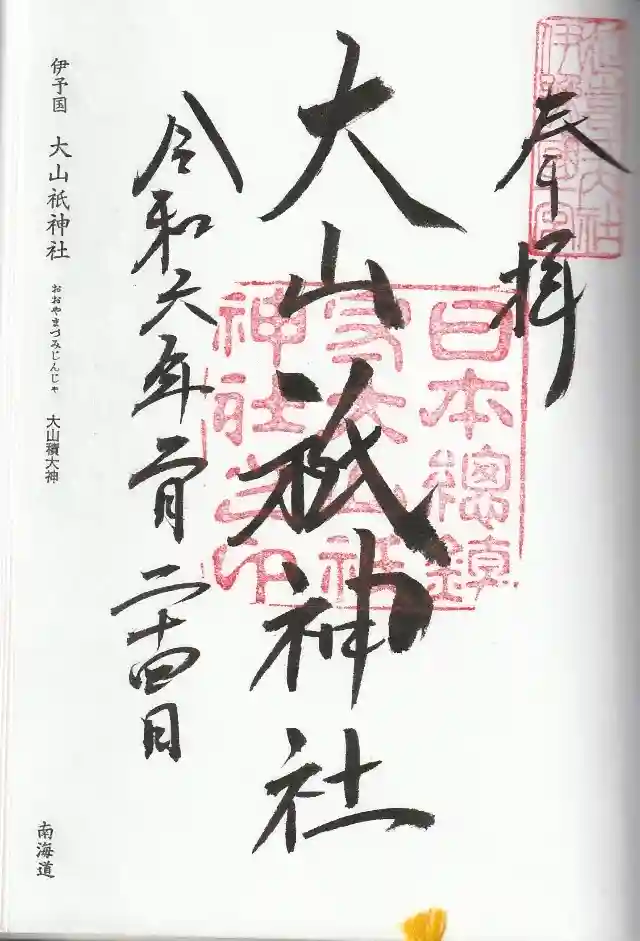 奉拝
延喜大社
伊豫國一宮
大山祇神社
日本總鎮
守大山祇
神社之印
令和六年二月二十四日
伊予国 大山祇神社 おおやまづみじんじゃ 大山積大神
南海道